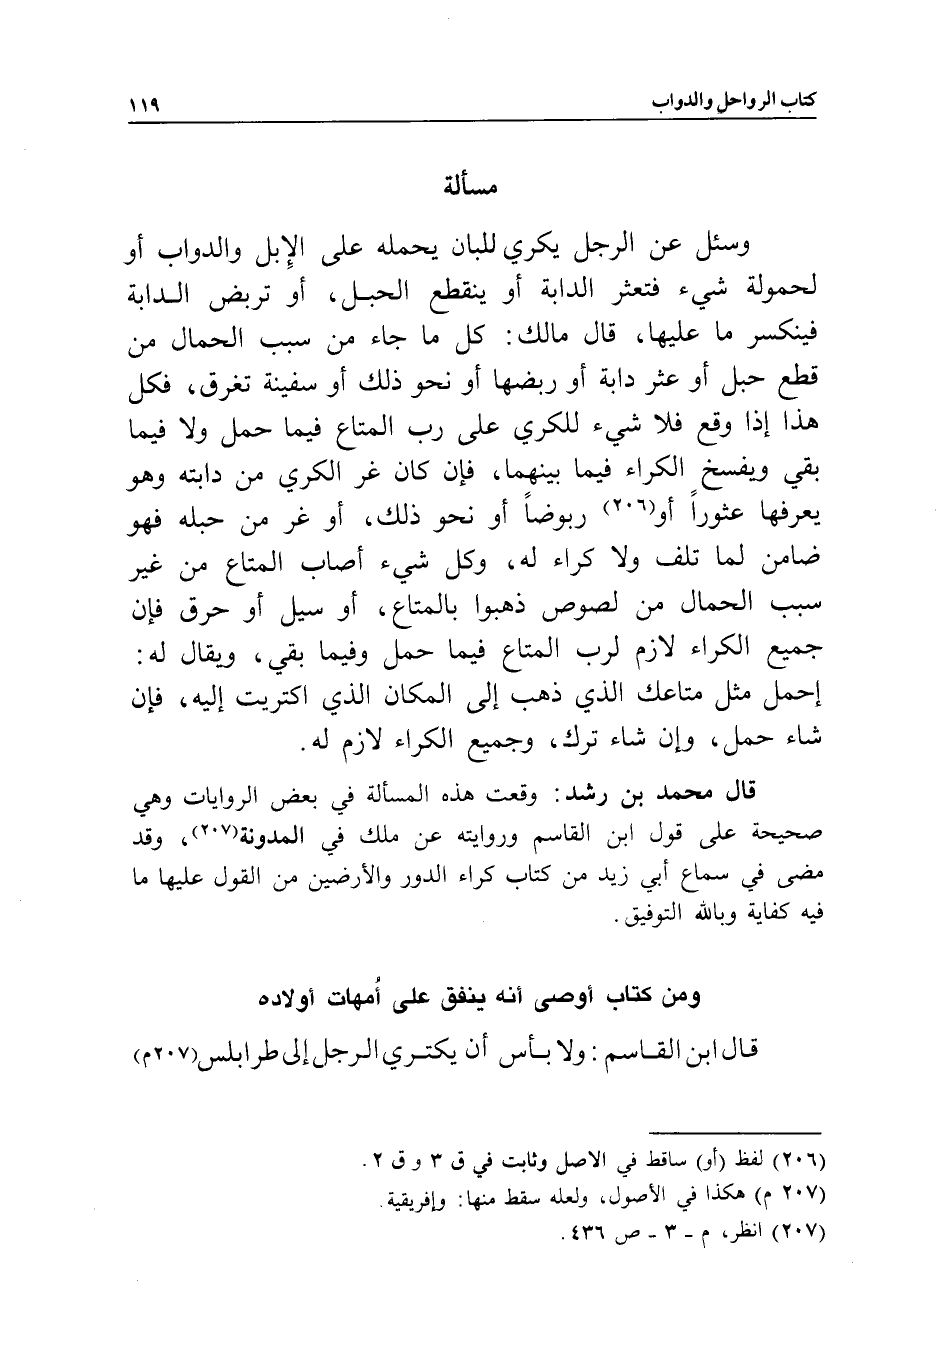 كتاب الرواحل والدواب ١١٩
مسألة
وسئل عن الرجل يكري للبان يحمله على الإبل والدواب أو
لحمولة شيء فتعثر الدابة أو ينقطع الحبل، أو تربض الدابة
فينكسر ما عليها، قال مالك: كل ما جاء من سبب الحمال من
قطع حبل أو عثر دابة أو ربضها أو نحو ذلك أو سفينة تغرق، فكل
هذا إذا وقع فلا شيء للكري على رب المتاع فيما حمل ولا فيما
بقي ويفسخ الكراء فيما بينهما، فإن كان غر الكري من دابته وهو
يعرفها عثوراً أو(٢٠٦) ربوضاً أو نحو ذلك، أو غر من حبله فهو
ضامن لما تلف ولا كراء له، وكل شيء أصاب المتاع من غير
سبب الحمال من لصوص ذهبوا بالمتاع، أو سيل أو حرق فإن
جميع الكراء لازم لرب المتاع فيما حمل وفيما بقي، ويقال له:
إحمل مثل متاعك الذي ذهب إلى المكان الذي اكتريت إليه، فإن
شاء حمل، وإن شاء ترك، وجميع الكراء لازم له.
قال محمد بن رشد: وقعت هذه المسألة في بعض الروايات وهي
صحيحة على قول ابن القاسم وروايته عن ملك في المدونة(٢٠٧)، وقد
مضى في سماع أبي زيد من كتاب كراء الدور والأرضين من القول عليها ما
فيه كفاية وبالله التوفيق.
ومن كتاب أوصى أنه ينفق على أُمهات أولاده
قال ابن القاسم: ولا بأس أن يكتري الرجل إلى طرابلس(٢٠٧م)
(٢٠٦) لفظ (أو) ساقط في الاصل وثابت في ق ٣ و ق ٢.
(٢٠٧ م) هكذا في الأصول، ولعله سقط منها: وإفريقية.
(٢٠٧) انظر، م - ٣ - ص ٤٣٦.